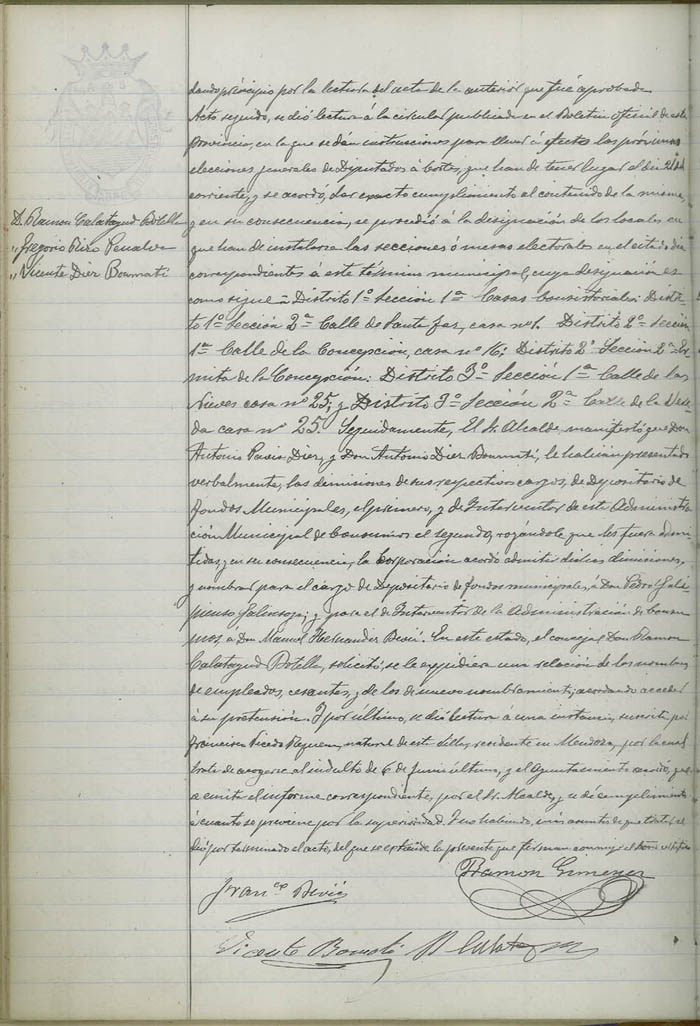 D. Ramon Calatayud Botella
" Gregorio Piro Penalva
" Vicente Dier Boumati
dando principio por la lectura del acta de la anterior que fué aprobada
Acto seguido, se dió lectura á la circular publicada en el Boletin oficial de esta
Provincia, en la que se dán instrucciones para llevar á efecto las próximas
elecciones generales de Diputados á Cortes, que han de tener lugar el dia 21 del
corriente, y se acordó, dar exacto cumplimiento al contenido de la misma,
y en su consecuencia, se procedió á la designacion de los locales en
que han de instalarse las secciones ó mesas electorales en el citado dia
correspondientes a este término municipal, cuya designacion es
como sigue = Distrito 1º Seccion 1ª Casas Consistoriales: Distri-
to 1º Seccion 2ª Calle de Santa Faz, casa nº 1. Distrito 2º Seccion
1ª Calle de la Concepcion, casa nº 16; Distrito 2º Seccion 2ª Er-
mita de la Concepción: Distrito 3º Seccion 1ª Calle de las
Nieves casa nº 25, y Distrito 3º Seccion 2ª Calle de la
da casa nº 25. Seguidamente, El Sr. Alcalde manifestó que Don
Antonio Dier, y Don Antonio Dier Boumati, le habian presentado
verbalmente, las dimisiones de sus respectivos cargos, de Depositario de
fondos Municipales, el primero, y de Interventor de esta Administra-
cion Municipal de Consumos el segundo, rogándole que les fuera admi-
tidas, y en su consecuencia, la Corporacion acordó admitir dichas dimisiones,
y nombrar para el cargo de Depositario de fondos municipales, á Don Pedro Gali-
pienso Galinsoga; y para el de Interventor de la Administracion de Consu-
mos, a Don Manuel Hernandez Beviá. En este estado, el concejal Don Ramon
Calatayud Botella, solicitó, se le expidiera una relacion de los nombres
de empleados, cesantes, y de los de nuevo nombramiento; acordando acceder
á su pretensión. Y por último, se dió lectura á una instancia, suscrita por
Francisco Picedo natural de este residente en Mendoza, por la cual
trata de acogerse al indulto de 6 de Junio último, y el Ayuntamiento acordó, que
se emita el informe correspondiente, por el Sr. Alcalde, y se dé cumplimiento
á cuanto se previene por la superioridad. Y no habiendo, mas asuntos de que tratar se
dió por terminado el acto, del que se extiende la presente que firman conmigo el certifico
Ramon Gimenez
Franco Beviá
Vicente Boumati R Calatayud